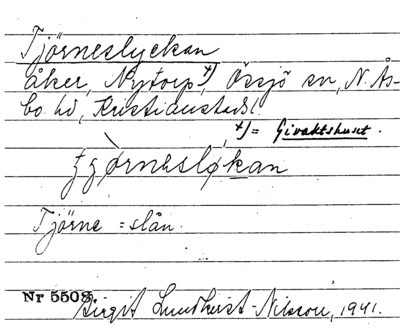 Tjörneslyckan
åker, Nytorp +), Össjö sn, N. Ås-
bo hd, Kristianstads l.
+) = Givaktshuset.
Tjörne = slån.
Nr 5508.
Birgit Lundkvist-Nilsson, 1941.